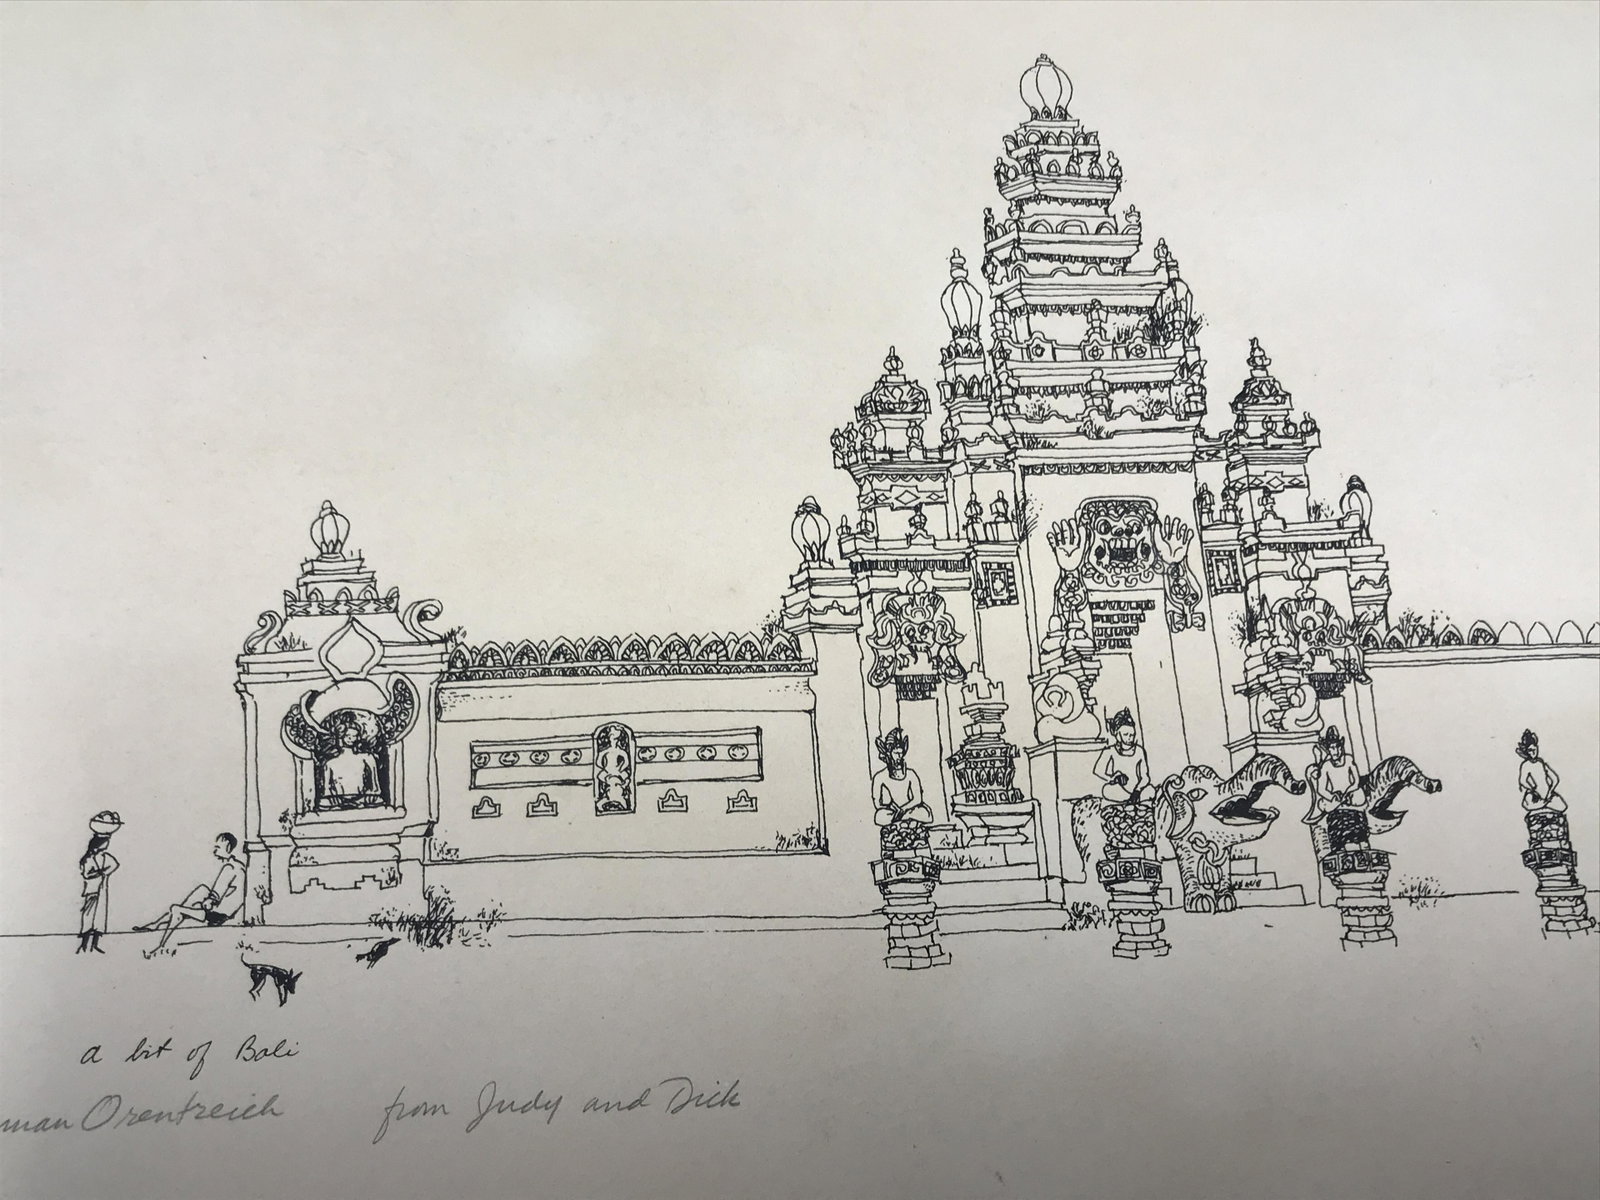 a bit of Bali
Orentreich from Judy and Dick